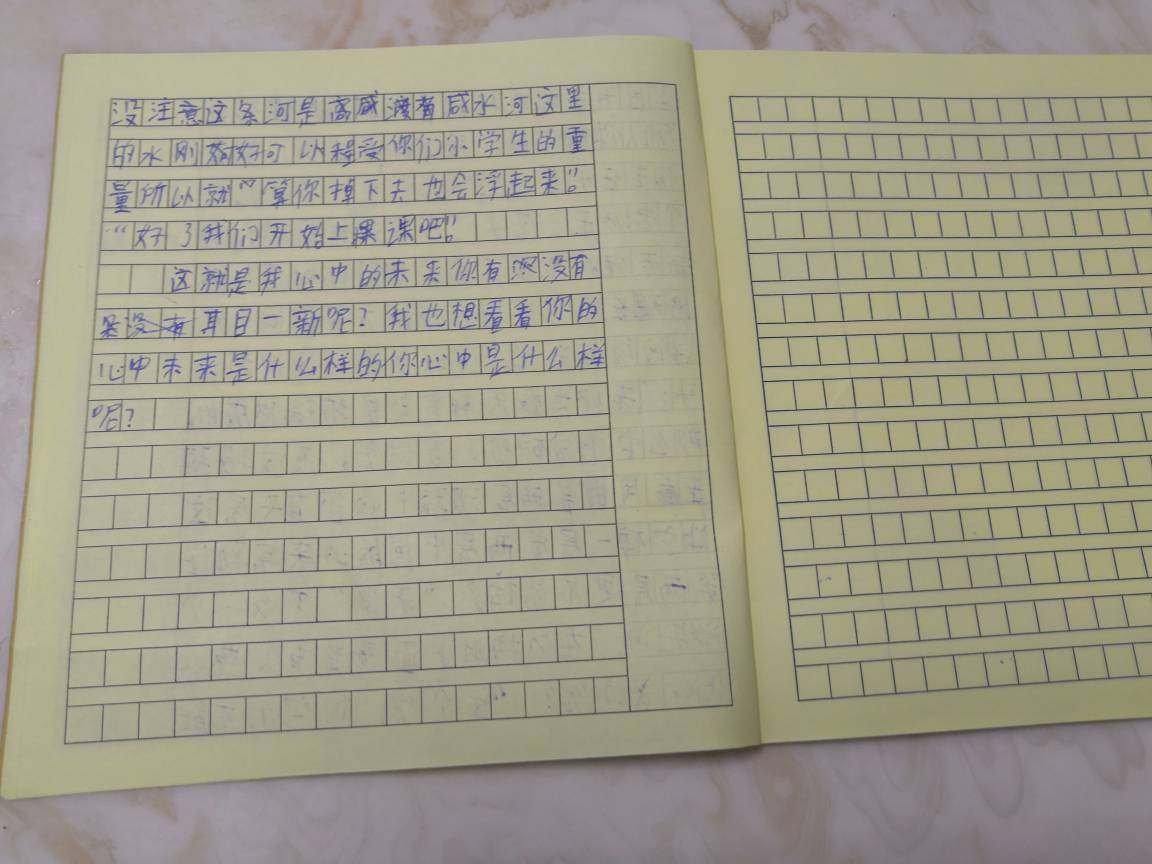 没注意这条河是高咸渡有咸水河这里
的水刚好好可以程受你们小学生的重
量所以就”算你掉下去也会浮起来”。
“好了我们开始上课课吧”。
这就是我心中的未来你有没有
是没有耳目一新呢？我也想看看你的
心中未来是什么样的你心中是什么样
呢？